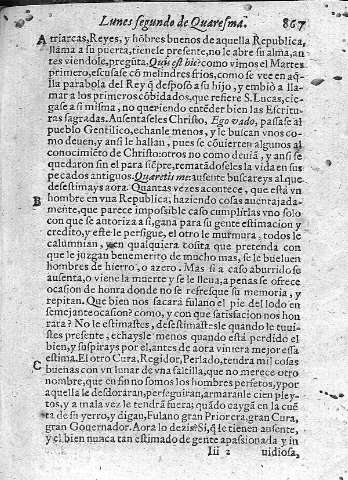 Lunes segundo de Quaresma. 867
A triarcas, Reyes, y hõbres buenos de aquella Republica,
llama a su puerta, tienele presente, no le abre su alma, an
tes viendole, pregũta. Quis est hic? como vimos el Martes
primero, escusase cõ melindres frios, como se vee en aq̃
lla parabola del Rey q̃ desposò a su hijo, y embiò a lla
mar a los primeros cõbidados, que refiere S. Lucas, cie-
gase a si misma, no queriendo entẽder bien las Escritu
ras sagradas. Ausentaseles Christo, Ego vado, passase al
pueblo Gentilico, echanle menos, y le buscan vnos co-
mo deuen, y ansi le hallan, pues se cõuierten algunos al
conocimiẽto de Christo: otros no como deuiã, y ansi se
quedaron sin el para siẽpre, rematãdoseles la vida en sus
pecados antiguos. Quæretis me: ausente buscareys al que
desestimays aora. Quantas vezes acontece, que està vn
B hombre en vna Republica, haziendo cosas auentajada-
mente, que parece impossible caso cumplirlas vno solo
con que se autoriza a si, gana para su gente estimacion y
credito, y este le persigue, el otro le murmura, todos le
calumnian, y en qualquiera cosita que pretenda con
que le juzgan benemerito de mucho mas, se le bueluen
hombres de hierro, o azero. Mas si a caso aburrido se
ausenta, o viene la muerte y se lleua, a penas se ofrece
ocasion de honra donde no se refresque su memoria, y
repitan. Que bien nos sacarà fulano el pie del lodo en
semejante ocasion? como, y con que satisfacion nos hon
rara? No le estimastes, desestimastesle quando le tuui-
stes presente, echaysle menos quando està perdido el
bien, y suspirays por el, antes de aora viniera mejor essa
estima. El otro Cura, Regidor, Perlado, tendra mil cosas
C buenas con vn lunar de vna faltilla, que no merece otro
nombre, que en fin no somos los hombres perfetos, y por
aquella le desdoraran, perseguiran, armaranle cien pley-
tos, y a mala vez le tendrã fuera; quãdo cayga en la cuẽ
ta de su yerro, y digan, Fulano gran Prior era, gran Cura,
gran Gouernador. Aora lo dezis? Si, q̃ le tienen ausente,
y el bien nunca tan estimado de gente apassionada y in
Iii 2 uidiosa,